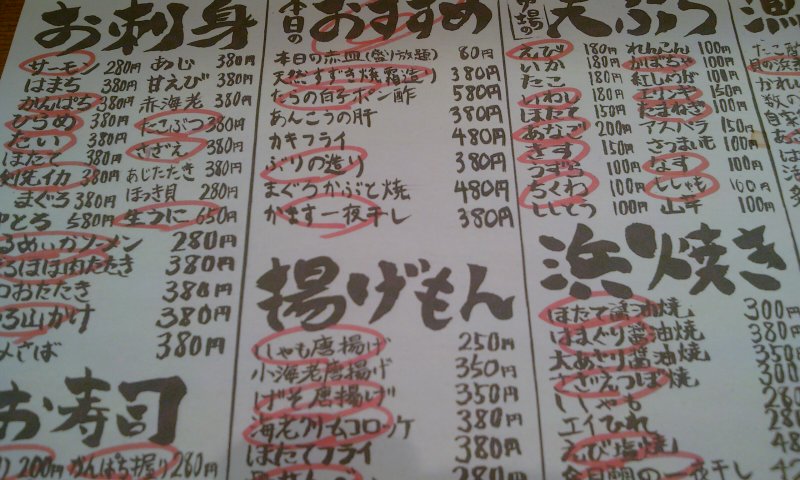 お刺身
サーモン 280円 あじ 380円
はまち 380円 甘えび 380円
かんぱち 380円 赤海老 380円
ひらめ 380円 たこぶつ 380円
たい 380円 さざえ 380円
ほたて 380円 あじたたき 380円
剣先イカ 380円 ほっき貝 280円
まぐろ 380円 生うに 650円
中とろ 580円
ソーメン 280円
たたき 380円
おたたき 380円
山かけ 380円
さば 380円
お寿司
200円 かんぱち握り 280円
本日の おすすめ
本日の赤皿(盛り放題) 80円
天然すずき焼霜造り 380円
たらの白子ポン酢 580円
あんこうの肝 380円
カキフライ 480円
ぶりの造り 380円
まぐろかぶと焼 480円
かます一夜干し 380円
揚げもん
ししゃも唐揚げ 250円
小海老唐揚げ 350円
げそ唐揚げ 350円
海老クリームコロッケ 380円
ほたてフライ 380円
280円
天ぷら
えび 180円 れんこん 100円
いか 180円 かぼちゃ 100円
たこ 180円 紅しょうが 100円
いわし 180円 エリンギ 150円
ほたて 150円 たまねぎ 100円
あなご 200円 アスパラ 150円
きす 150円 さつまいも 100円
うずら 100円 なす 100円
ちくわ 100円 ししゃも 100円
ししとう 100円 山芋 100円
浜焼き
ほたて醤油焼 300円
はまぐり醤油焼 380円
大あさり醤油焼 350円
さざえつぼ焼 300円
ししゃも 280円
エイひれ 280円
えび塩焼
の一夜干し